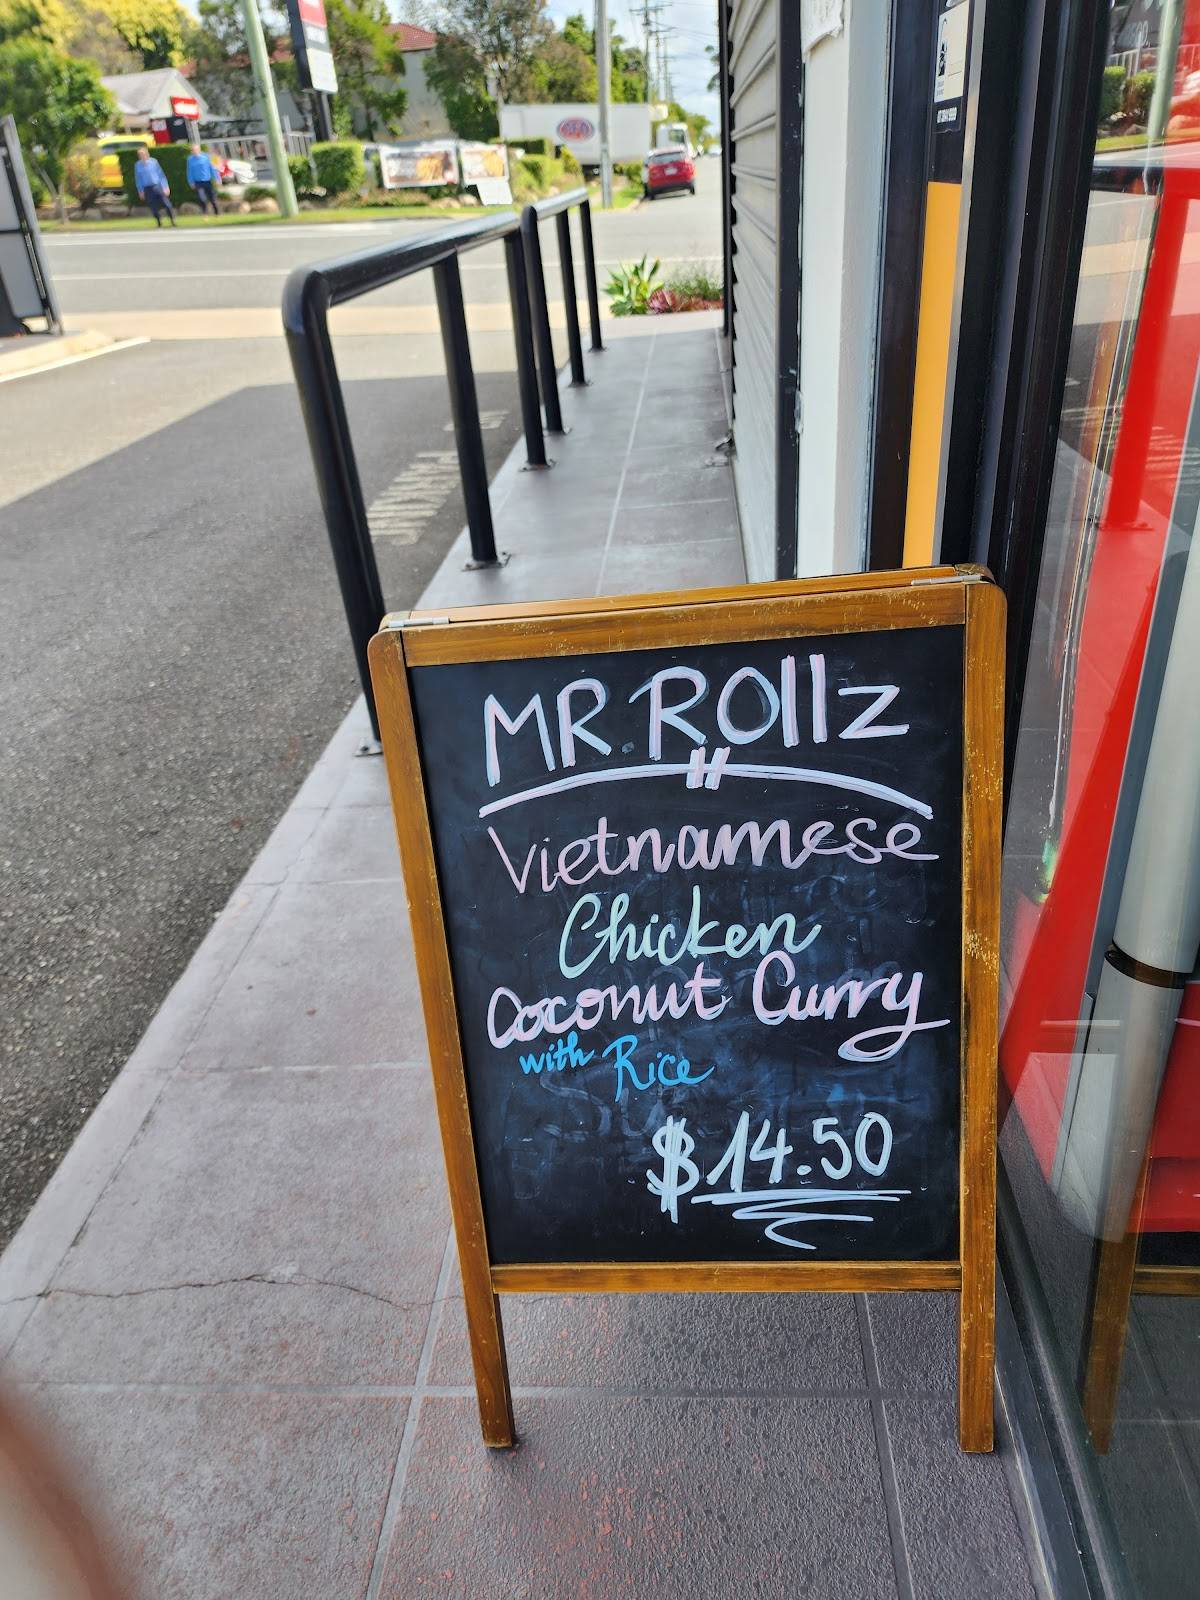 MR. ROllz
Vietnamese
Chicken
Coconut Curry
with Rice
$14.50